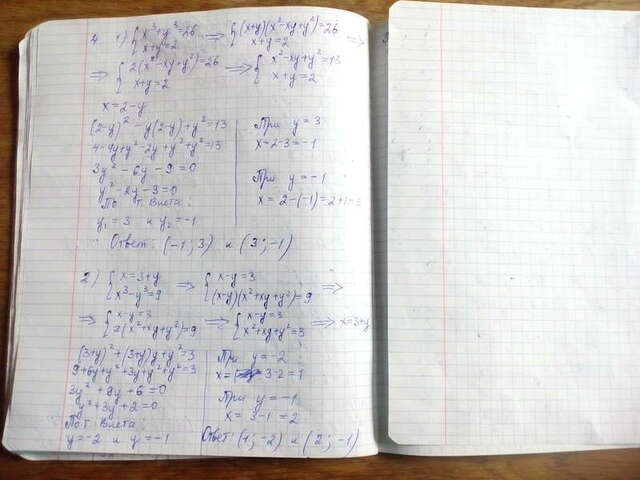 4. 1) { x³+y³=26 x+y=2 ⟹ { (x+y)(x²-xy+y²)=26 x+y=2 ⟹
⟹ { 2(x²-xy+y²)=26 x+y=2 ⟹ { x²-xy+y²=13 x+y=2
x=2-y
(2-y)²-y(2-y)+y²=13
4-4y+y²-2y+y²+y²=13
3y²-6y-9=0
y²-2y-3=0
По т. Виета:
y₁=3 и y₂=-1
При y=3
x=2-3=-1
При y=-1
x=2-(-1)=2+1=3
Ответ: (-1;3) и (3;-1)
2) { x=3+y x³-y³=9 ⟹ { x-y=3 (x-y)(x²+xy+y²)=9 ⟹
⟹ { x-y=3 3(x²+xy+y²)=9 ⟹ { x-y=3 x²+xy+y²=3 ⟹ x=3+y
(3+y)²+(3+y)y+y²=3
9+6y+y²+3y+y²+y²=3
3y²+9y+6=0
y²+3y+2=0
По т. Виета:
y=-2 и y=-1
При y=-2
x= 3-2=1
При y=-1
x=3-1=2
Ответ: (1;-2) и (2;-1)